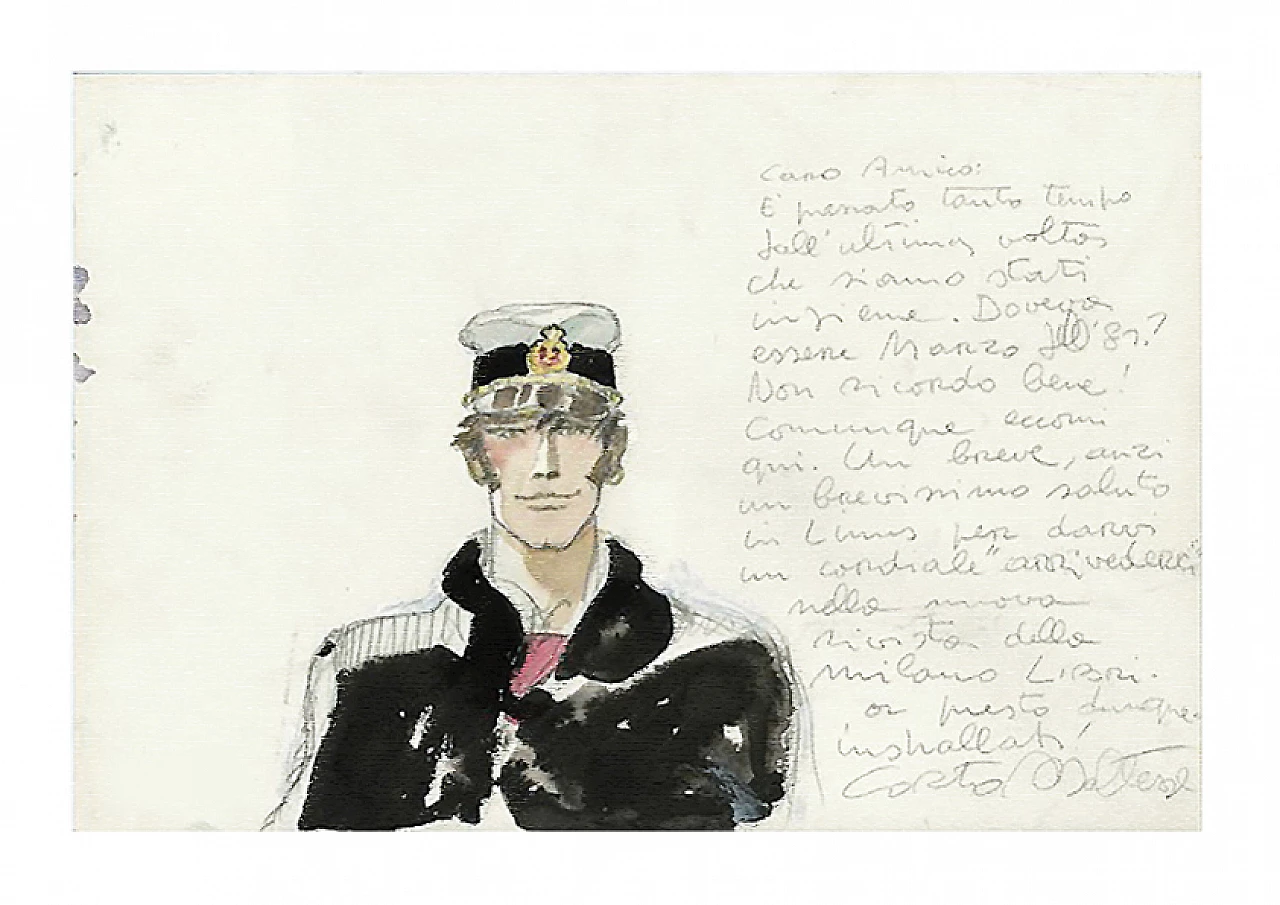 Caro Amico:
È passato tanto tempo
dall'ultima volta
che siamo stati
insieme. Doveva
essere Marzo dell'81?
Non ricordo bene!
Comunque eccomi
qui. Un breve, anzi
un brevissimo saluto
in Linus per darvi
un cordiale "arrivederci"
nella nuova
rivista della
Milano Libri.
a presto dunque.
inshallah!
Corto Maltese